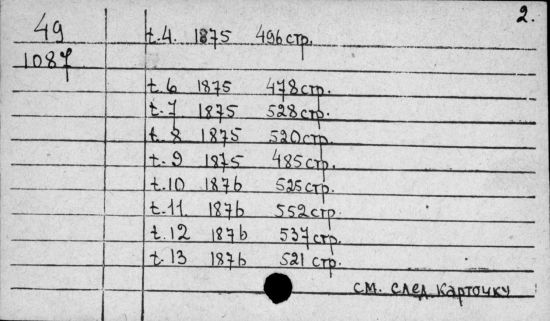 2.
49
1087
t.4. 1875 496стр.
t.6 1875 478стр.
t.7 1875 528стр.
t.8 1875 520стр.
t.9 1875 485стр.
t.10 1876 525стр.
t.11 1876 552стр.
t.12 1876 537стр.
t.13 1876 521стр.
см. след карточку